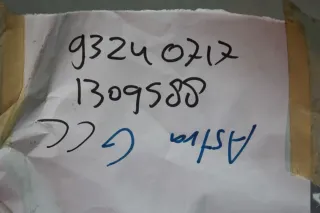 93240717
1309588
Astra G CC